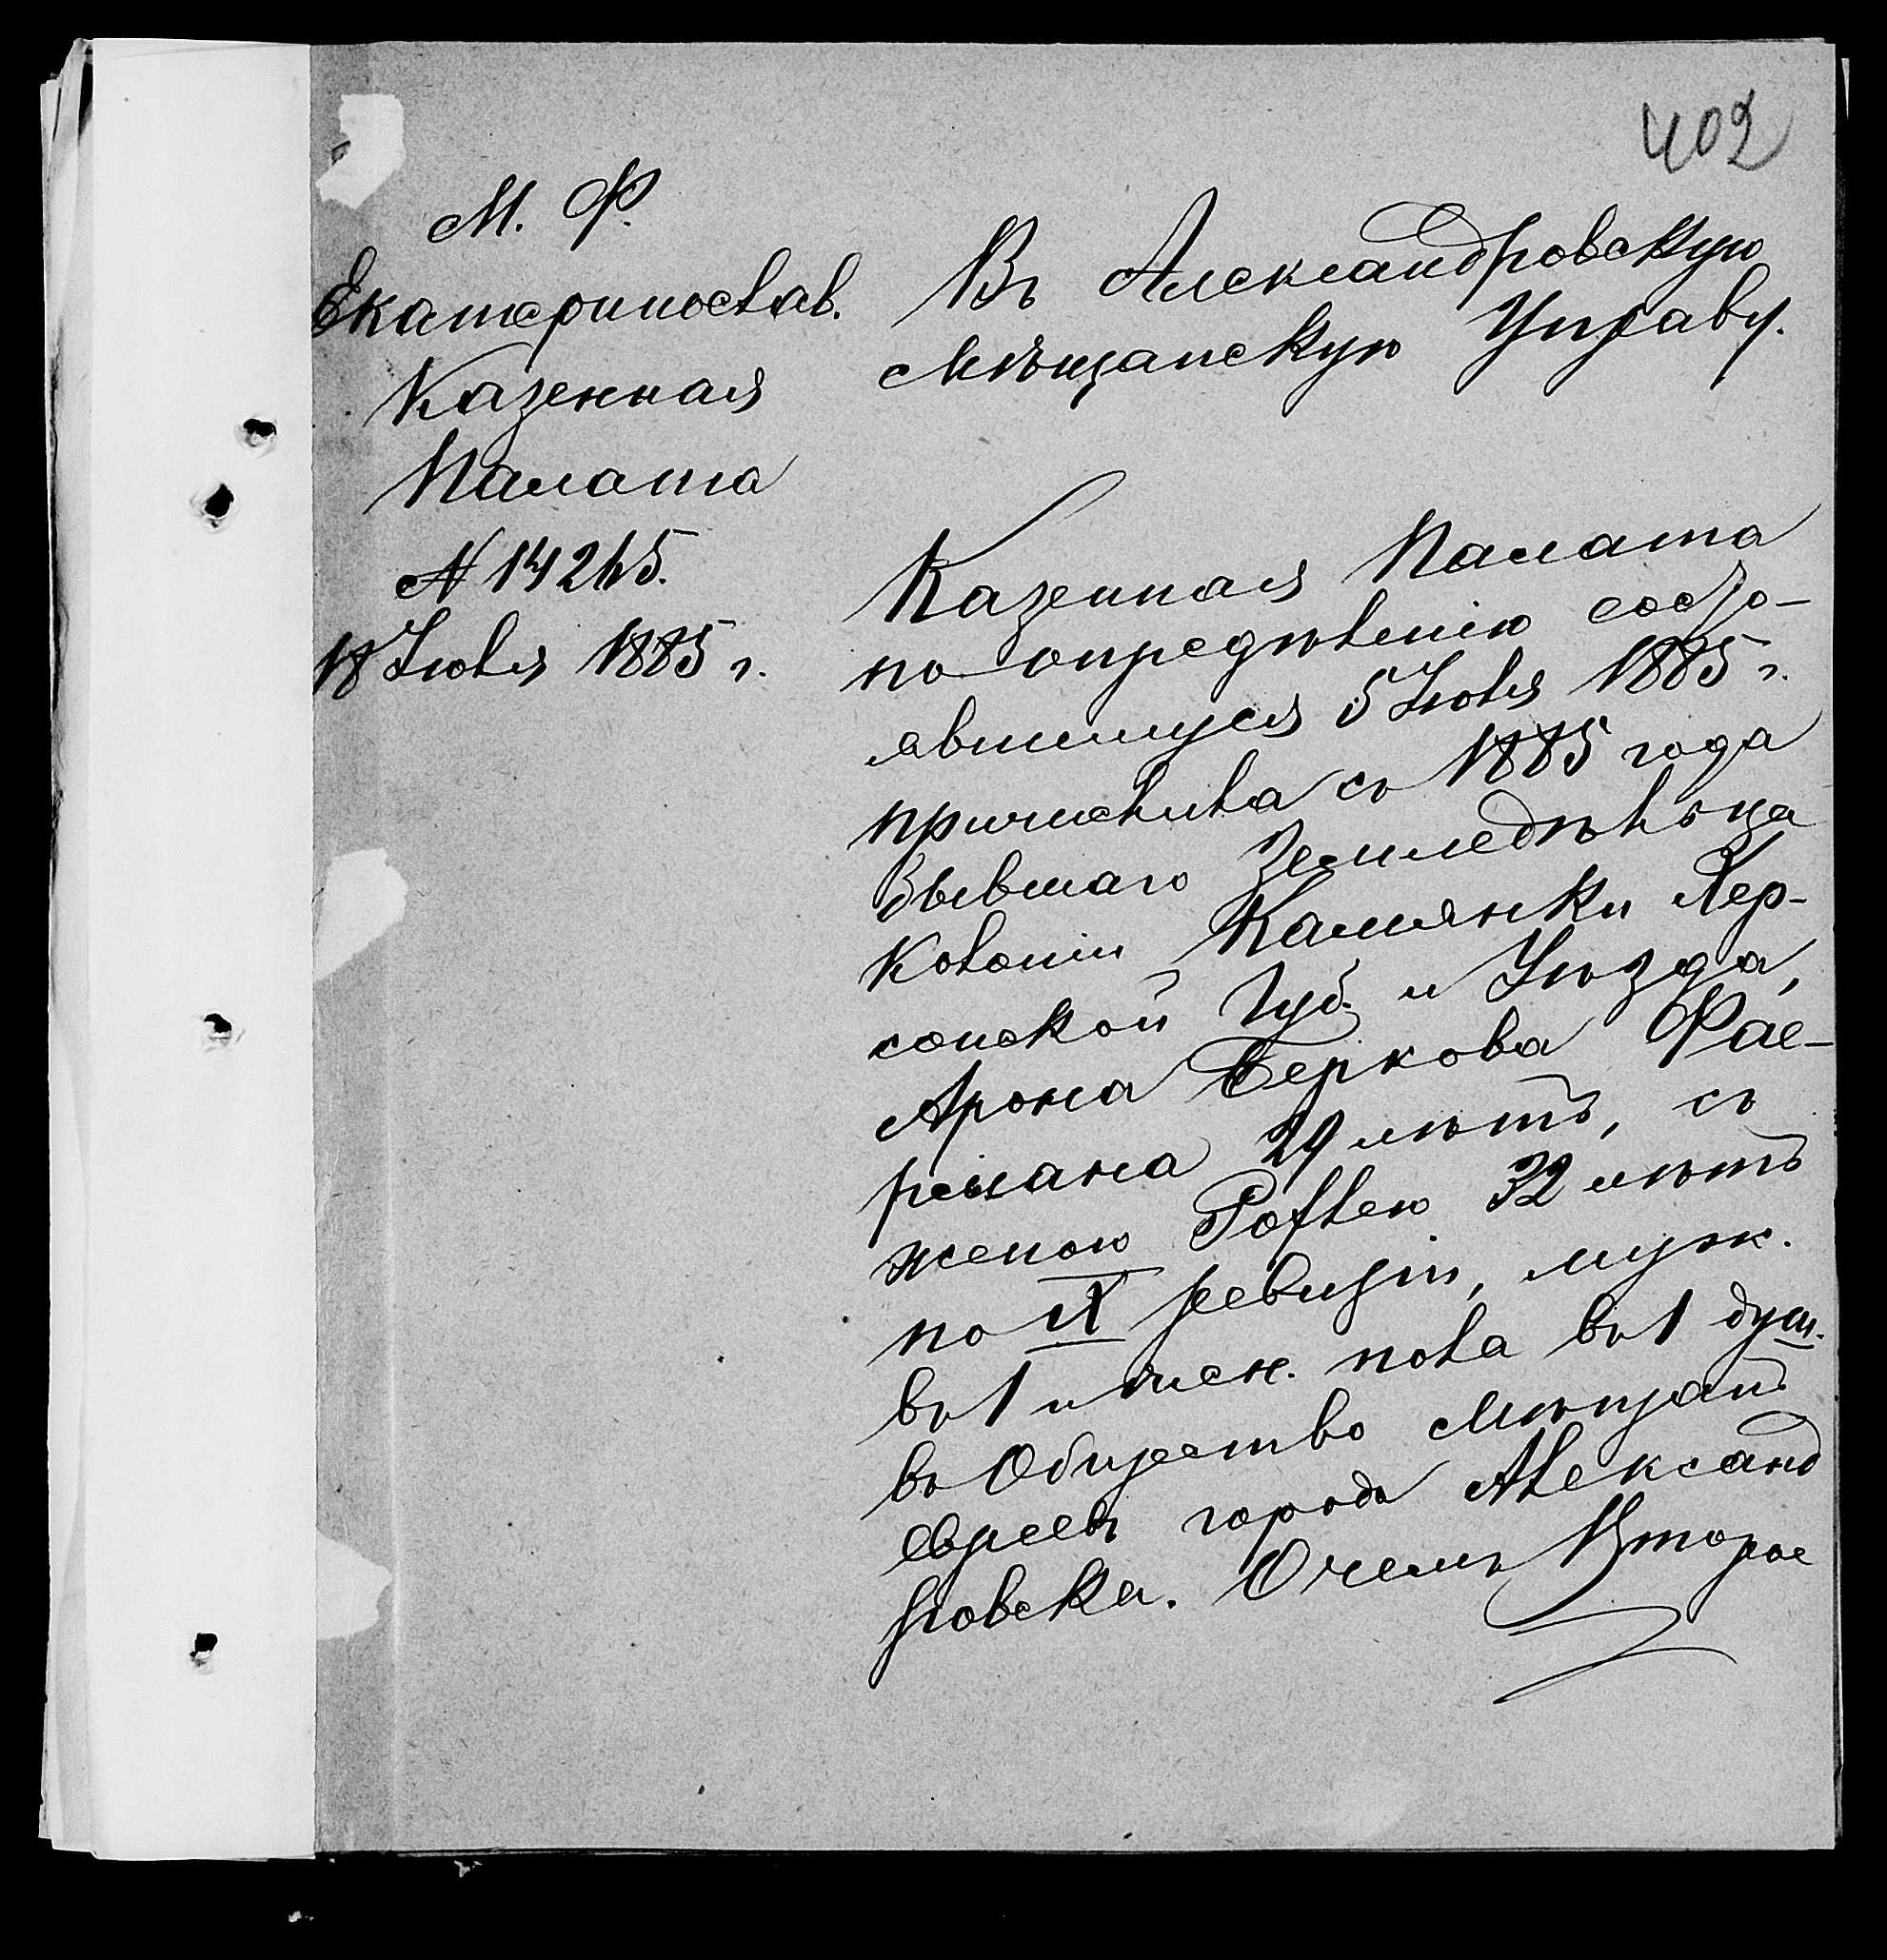 402
М. Ф.
Екатеринослав.
Казенная
Палата
№ 14265.
18 Июля 1885 г.
Въ Александровскую
Мѣщанскую Управу.
Казенная Палата
по опредѣленію состо-
явшемуся 5 Июля 1885 г.
причислила съ 1885 года
бывшаго Земледѣльца
Колоніи Камянки Хер-
сонской Губ. и Уѣзда,
Арона Беркова Фае-
рмана 29 лѣтъ, съ
женою 32 лѣтъ
по ревизіи, муж.
въ 1 и жен. пола въ 1 душ.
въ Общество Мѣщанъ
евреевъ города Александ
ровска. О чемъ Второе